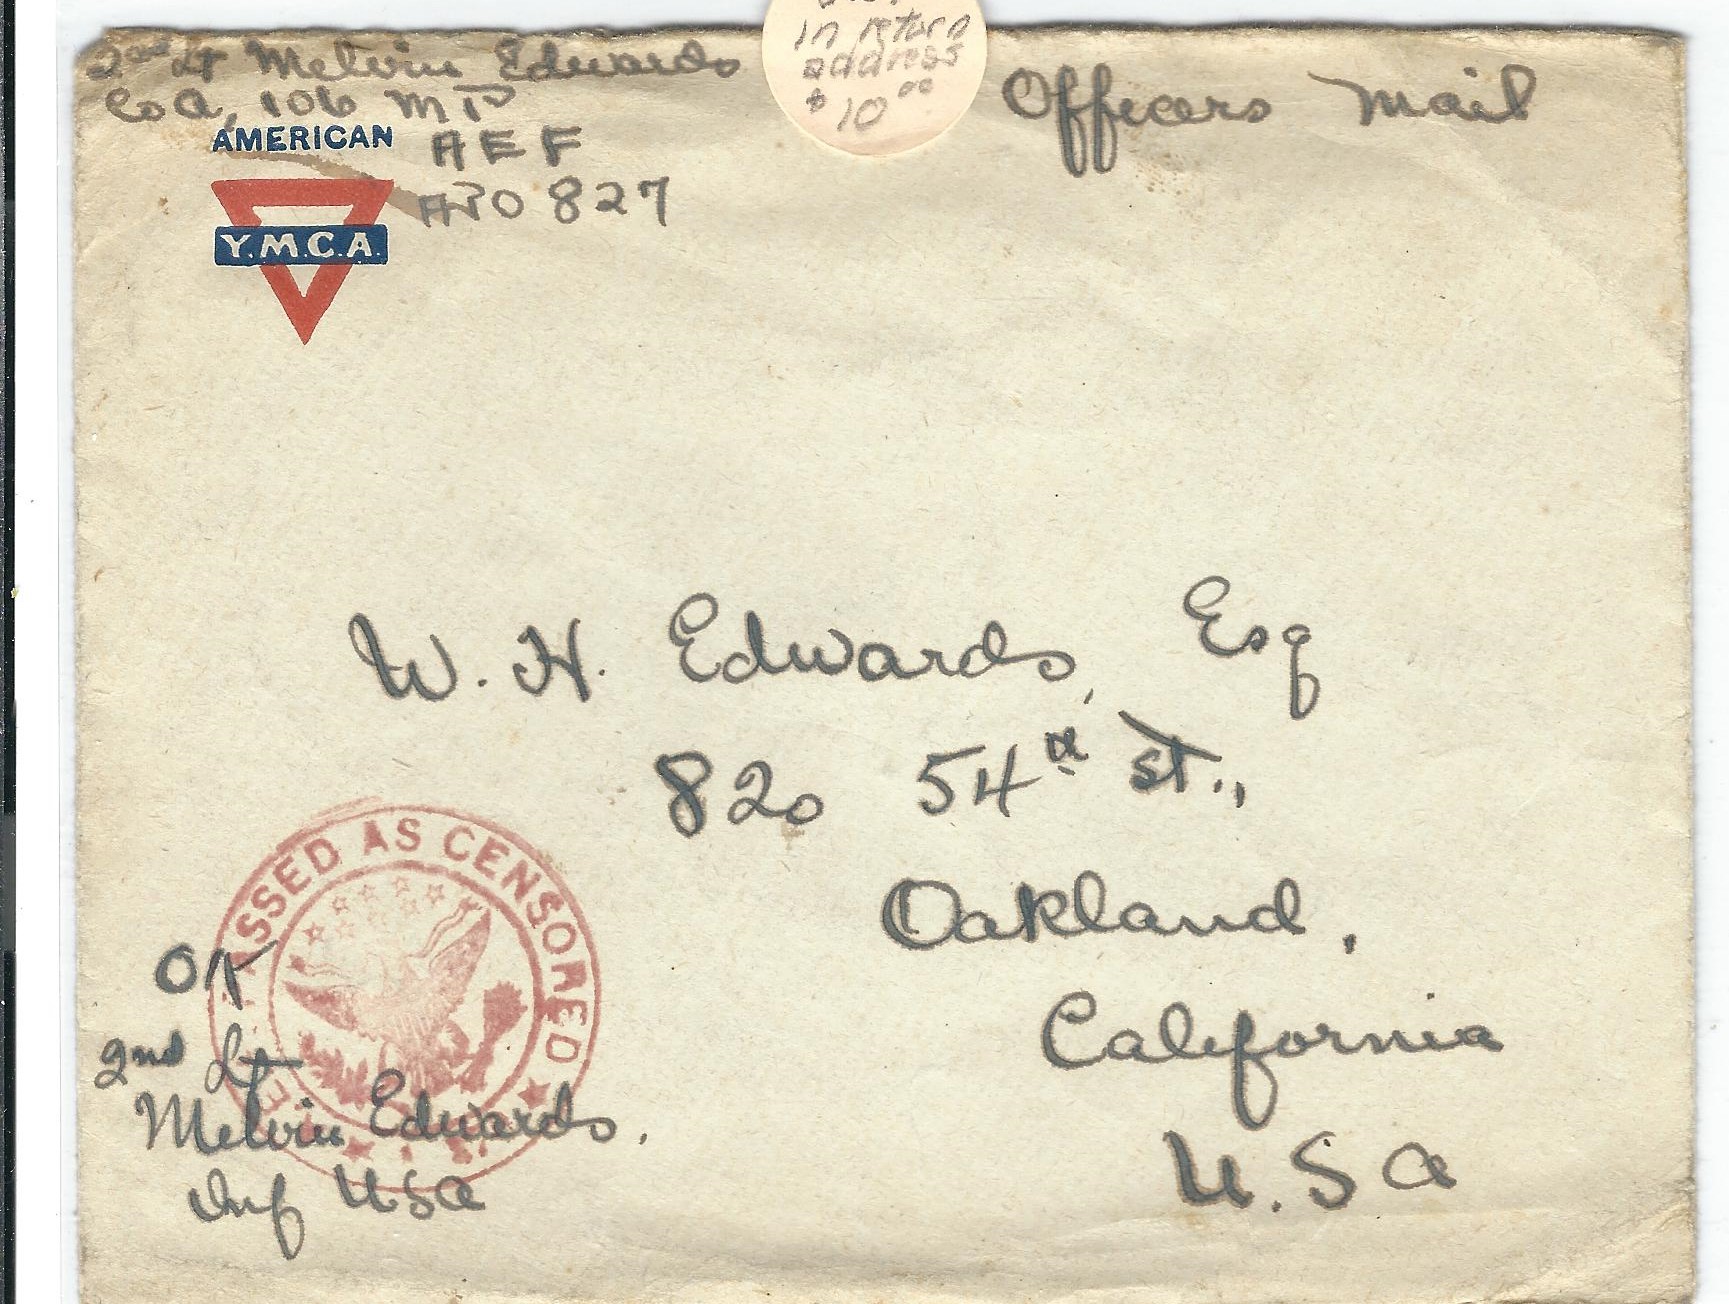 2nd Lt Melvin Edwards
Co A, 106 MP
AEF
APO 827
AMERICAN
Y.M.C.A.
in return
address
$10.00
Officers Mail
W. H. Edwards, Esq
820 54th St.,
Oakland,
California
U.S.A
PASSED AS CENSORED
OK
2nd Lt
Melvin Edwards.
Inf USA